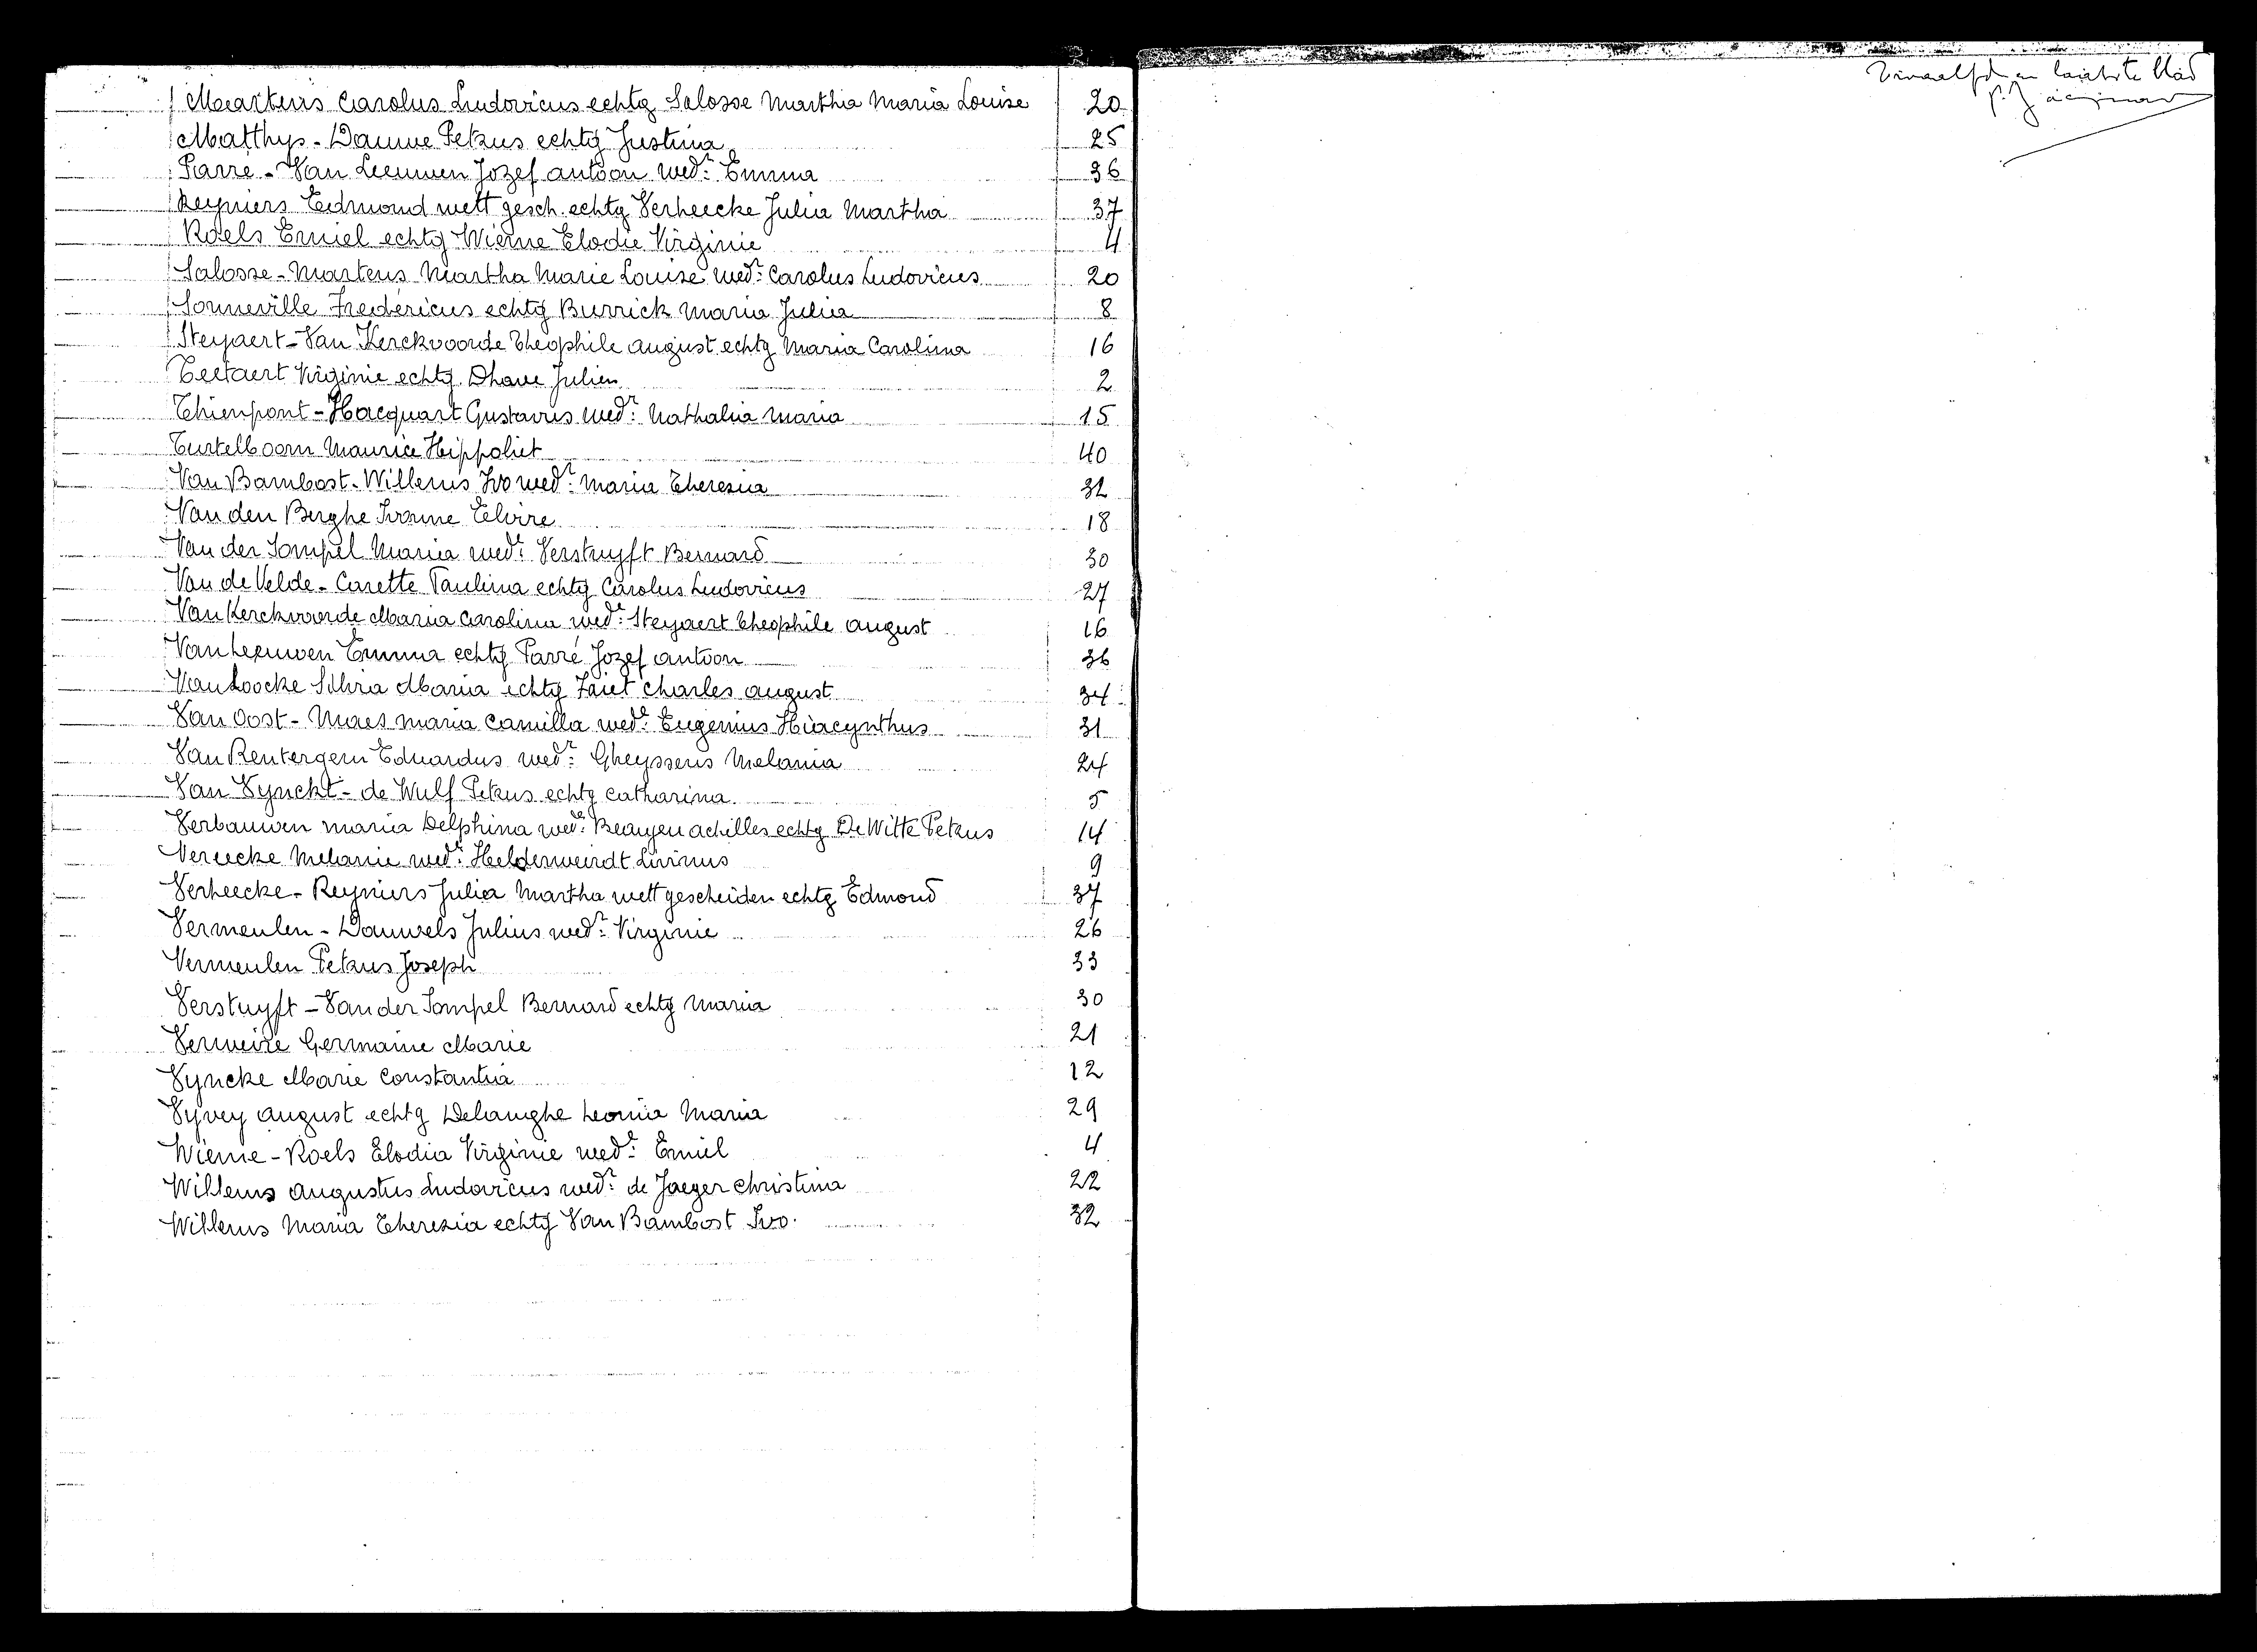 Martens Carolus Ludovicus echtg Salosse Martha Maria Louise 20
Matthys - Dauwe Petrus echtg Justina 25
Parré - Van Leeuwen Jozef antoon wedr: Emma 36
Reyniers Edmond wett gesch. echtg Verheecke Julia Martha 37
Roels Emiel echtg Wieme Elodie Virginie 4
Salosse - Martens Martha Marie Louise wede: Carolus Ludovicus 20
Sonneville Fredericus echtg Burrick Maria Julia 8
Steyaert - Van Kerckvoorde Theophile august echtg Maria Carolina 16
Teetaert Virginie echtg Dhave Julien 2
Thienpont - Hacquart Gustavus wedr: Nathalia Maria 15
Turtelboom Maurice Hippoliet 40
Van Bambost - Willems Ivo wedr: Maria Theresia 32
Van den Berghe Ivonne Elvire 18
Van der Sompel Maria wede: Verstuyft Bernard 30
Van de Velde - Carette Paulina echtg Carolus Ludovicus 27
Van Kerckvoorde Maria Carolina wede: Steyaert Theophile august 16
Van Leeuwen Emma echtg Parré Jozef antoon 36
Van Loocke Silvia Maria echtg Zaiet Charles august 34
Van Oost - Maes maria Camilla wede: Eugenius Hiacynthus 31
Van Rentergem Eduardus wedr: Gheyssens Melania 24
Van Vynckt - de Wulf Petrus echtg Catharina 5
Verbauwen maria Delphina wede: Beayen achilles echtg De Witte Petrus 14
Vereecke Melanie wede: Helderweirdt Livinus 9
Verheecke - Reyniers Julia Martha wett gescheiden echtg Edmond 37
Vermeulen - Dauwels Julius wedr: Virginie 26
Vermeulen Petrus Joseph 33
Verstuyft - Van der Sompel Bernard echtg Maria 30
Verweire Germaine Marie 21
Vyncke Marie Constantia 12
Vyvey august echtg Delanghe Leonia Maria 29
Wieme - Roels Elodia Virginie wede: Emiel 4
Willems augustus Ludovicus wedr: de Jaeger Christina 22
Willems Maria Theresia echtg Van Bambost Ivo. 32
en laatste blad